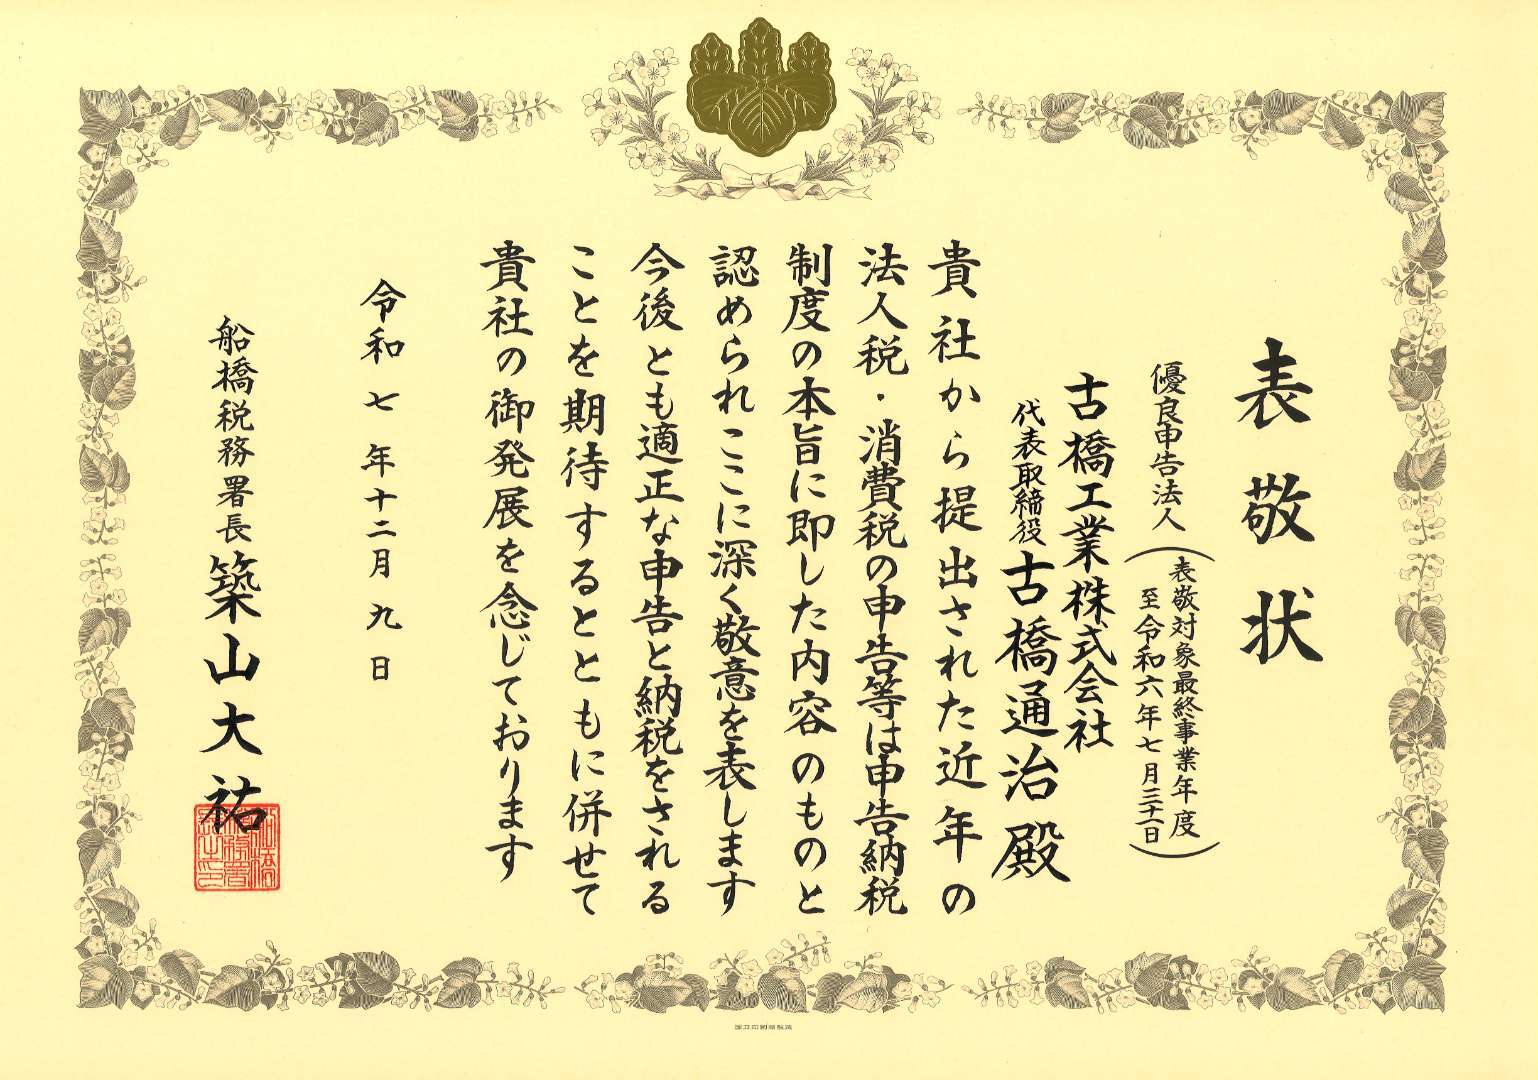 表敬状
優良申告法人(表敬対象最終事業年度
至令和六年七月三十一日)
古橋工業株式会社
代表取締役 古橋通治殿
貴社から提出された近年の
法人税・消費税の申告等は申告納税
制度の本旨に即した内容のものと
認められここに深く敬意を表します
今後とも適正な申告と納税をされる
ことを期待するとともに併せて
貴社の御発展を念じております
令和七年十二月九日
船橋税務署長 築山大祐
船橋
税務署
長之印
国立印刷局製造